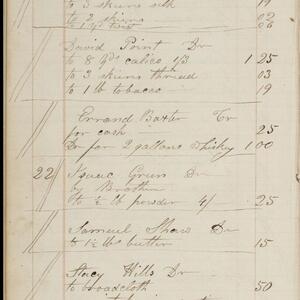 to 3 skeins silk 19
to 2 skeins 02
to 1 yd 06
David Point Dr
to 8 yds calico 1/3 1 25
to 3 skeins thread 03
to 1 lb tobacco 19
Errand Baxter Cr
for cash 25
Dr for 2 gallons whisky 1 00
22 Isaac Green Dr
by Brother
to ½ lb powder 4/ 25
Samuel Shaw Dr
to 1½ lbs butter 15
Stacy Hills Dr
to broadcloth 50